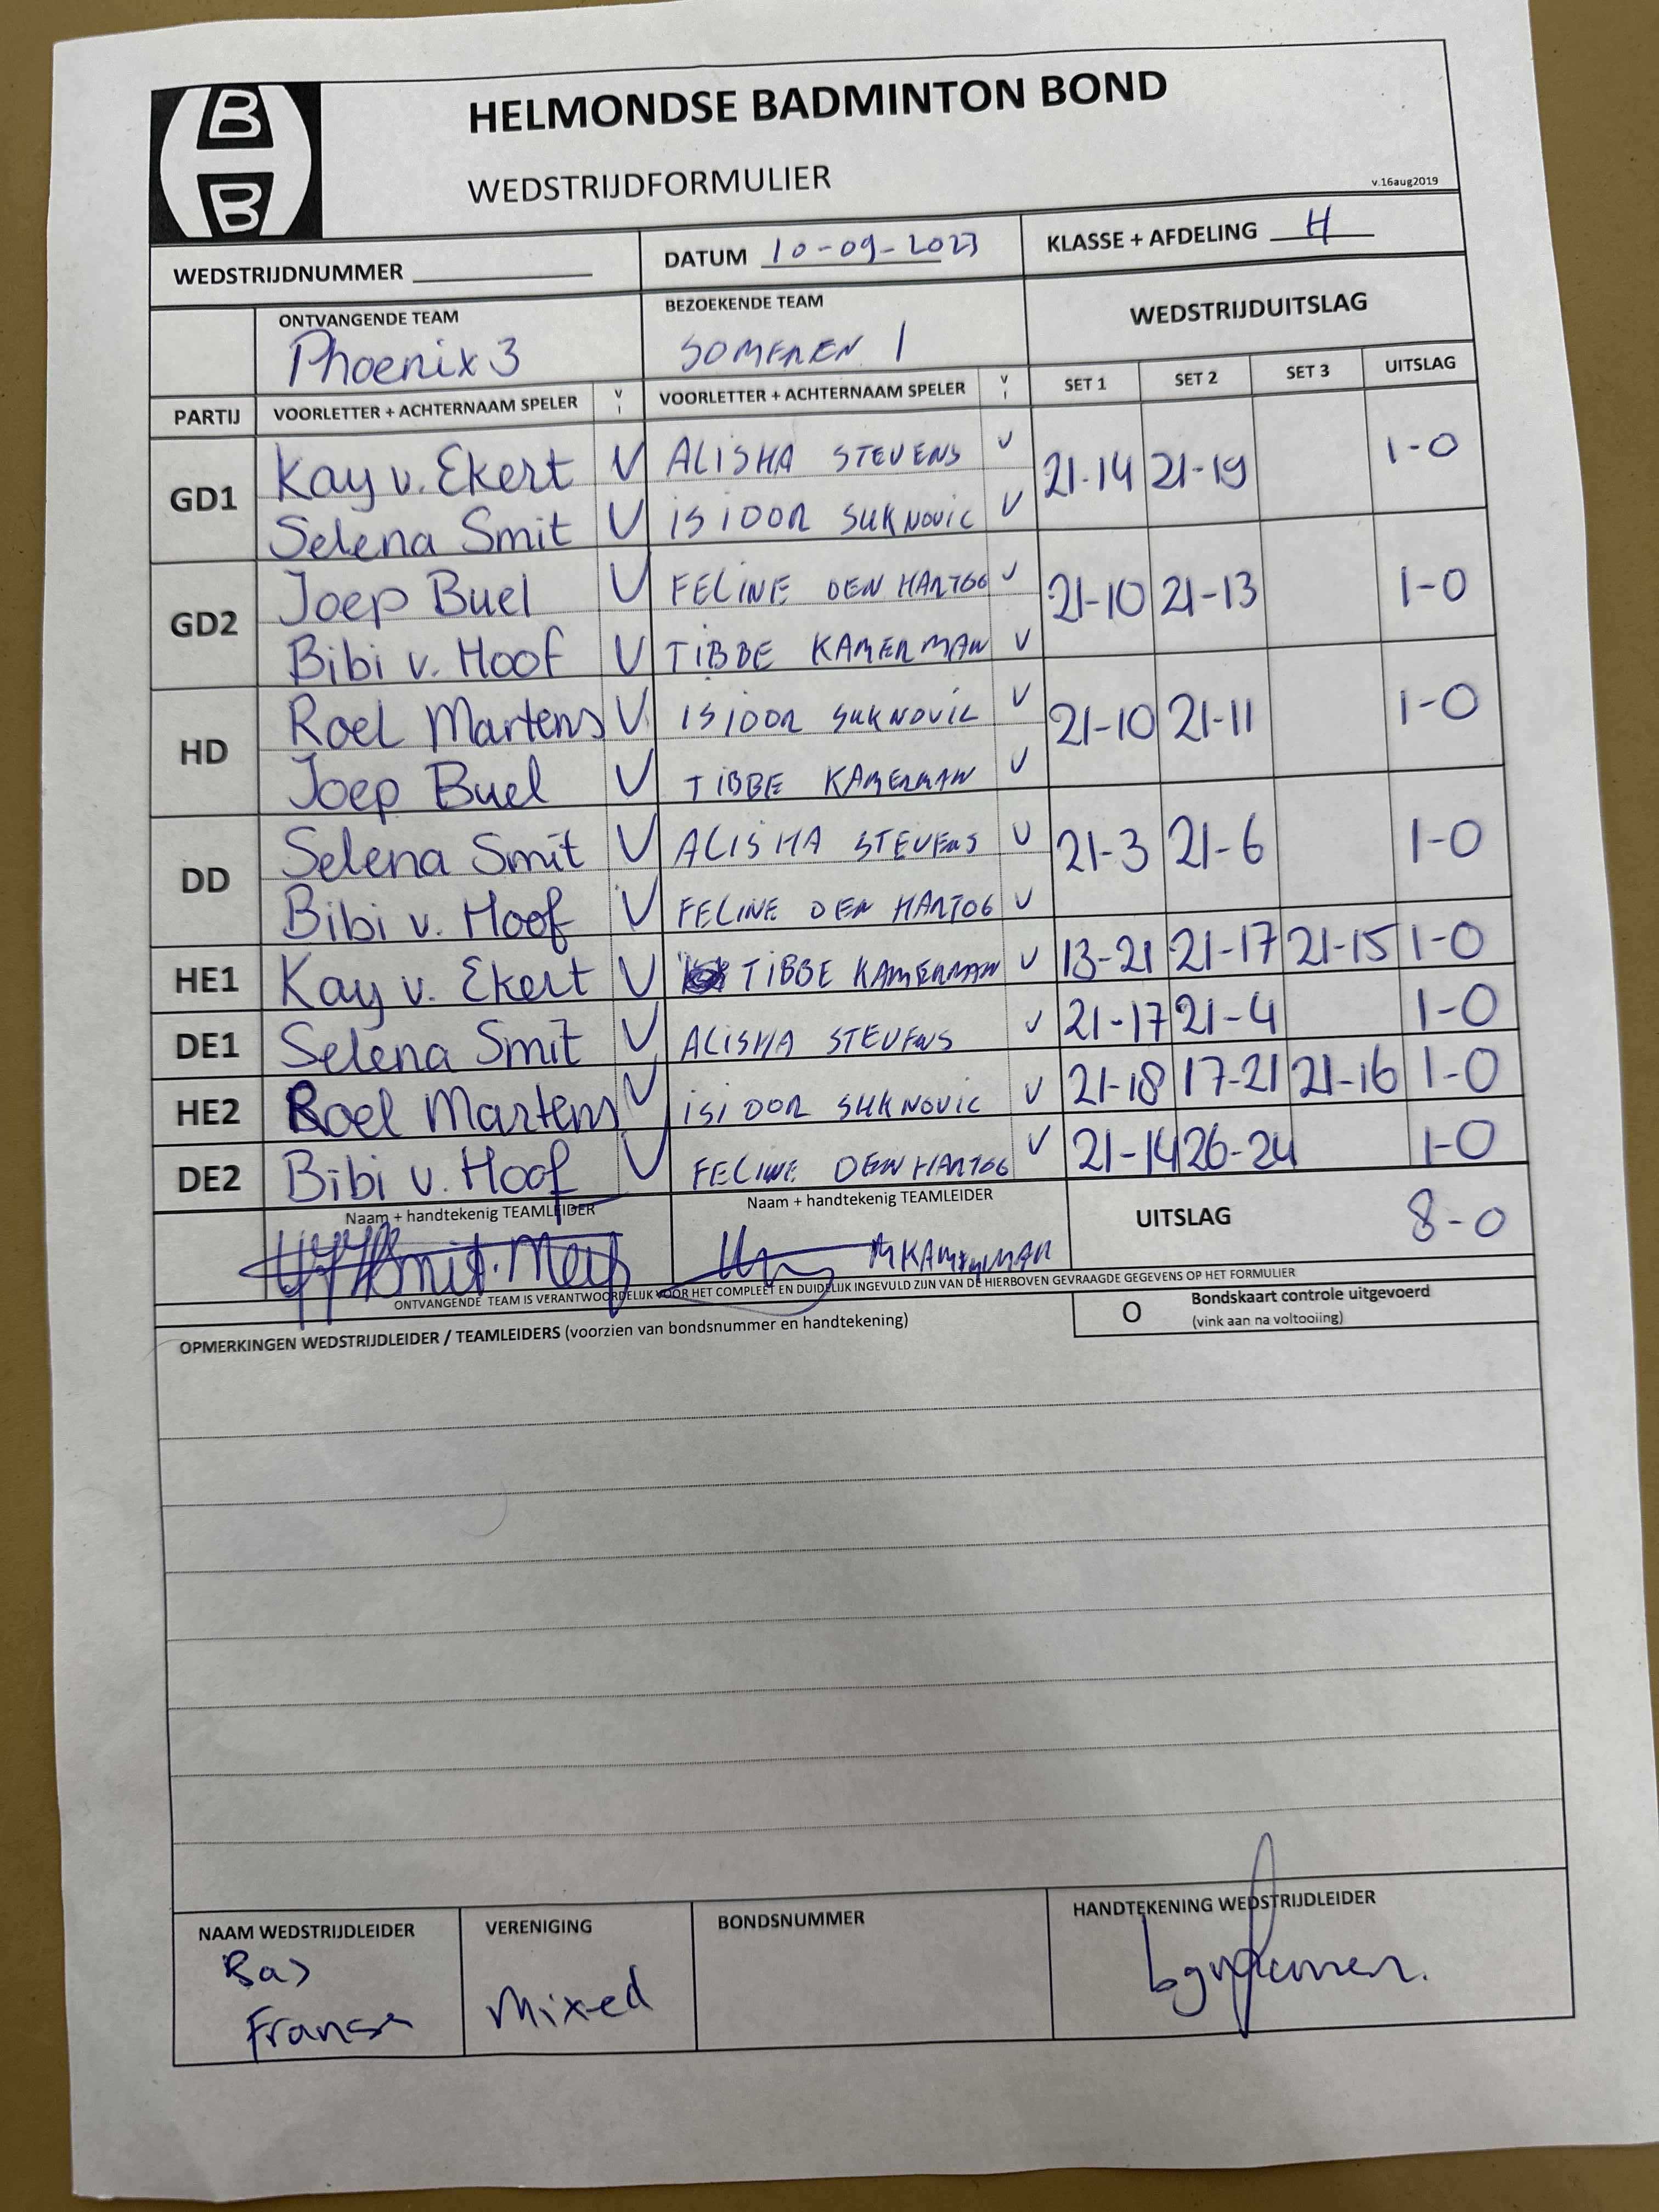 B
B
HELMONDSE BADMINTON BOND
WEDSTRIJDFORMULIER
v.16aug2019
WEDSTRIJDNUMMER
DATUM 10-09-2023
KLASSE + AFDELING H
ONTVANGENDE TEAM
Phoenix 3
BEZOEKENDE TEAM
SOMEREN 1
WEDSTRIJDUITSLAG
PARTIJ VOORLETTER + ACHTERNAAM SPELER V I VOORLETTER + ACHTERNAAM SPELER V I SET 1 SET 2 SET 3 UITSLAG
GD1 Kay v. Ekert V ALISHA STEVENS V 21-14 21-19 1-0
Selena Smit V ISIDOOR SUKNOVIC V
GD2 Joep Buel V FELINE DEN HARTOG V 21-10 21-13 1-0
Bibi v. Hoof V TIBBE KAMERMAN V
HD Roel Martens V ISIDOOR SUKNOVIC V 21-10 21-11 1-0
Joep Buel V TIBBE KAMERMAN V
DD Selena Smit V ALISHA STEVENS V 21-3 21-6 1-0
Bibi v. Hoof V FELINE DEN HARTOG V
HE1 Kay v. Ekert V TIBBE KAMERMAN V 13-21 21-17 21-15 1-0
DE1 Selena Smit V ALISHA STEVENS V 21-17 21-4 1-0
HE2 Roel Martens V ISIDOOR SUKNOVIC V 21-18 17-21 21-16 1-0
DE2 Bibi v. Hoof V FELINE DEN HARTOG V 21-14 26-24 1-0
Naam + handtekenig TEAMLEIDER
Naam + handtekenig TEAMLEIDER
M KAMERMAN
UITSLAG 8-0
ONTVANGENDE TEAM IS VERANTWOORDELIJK VOOR HET COMPLEET EN DUIDELIJK INGEVULD ZIJN VAN DE HIERBOVEN GEVRAAGDE GEGEVENS OP HET FORMULIER
OPMERKINGEN WEDSTRIJDLEIDER / TEAMLEIDERS (voorzien van bondsnummer en handtekening)
O Bondskaart controle uitgevoerd
(vink aan na voltooiing)
NAAM WEDSTRIJDLEIDER
Bas
VERENIGING
Mixed
BONDSNUMMER
HANDTEKENING WEDSTRIJDLEIDER